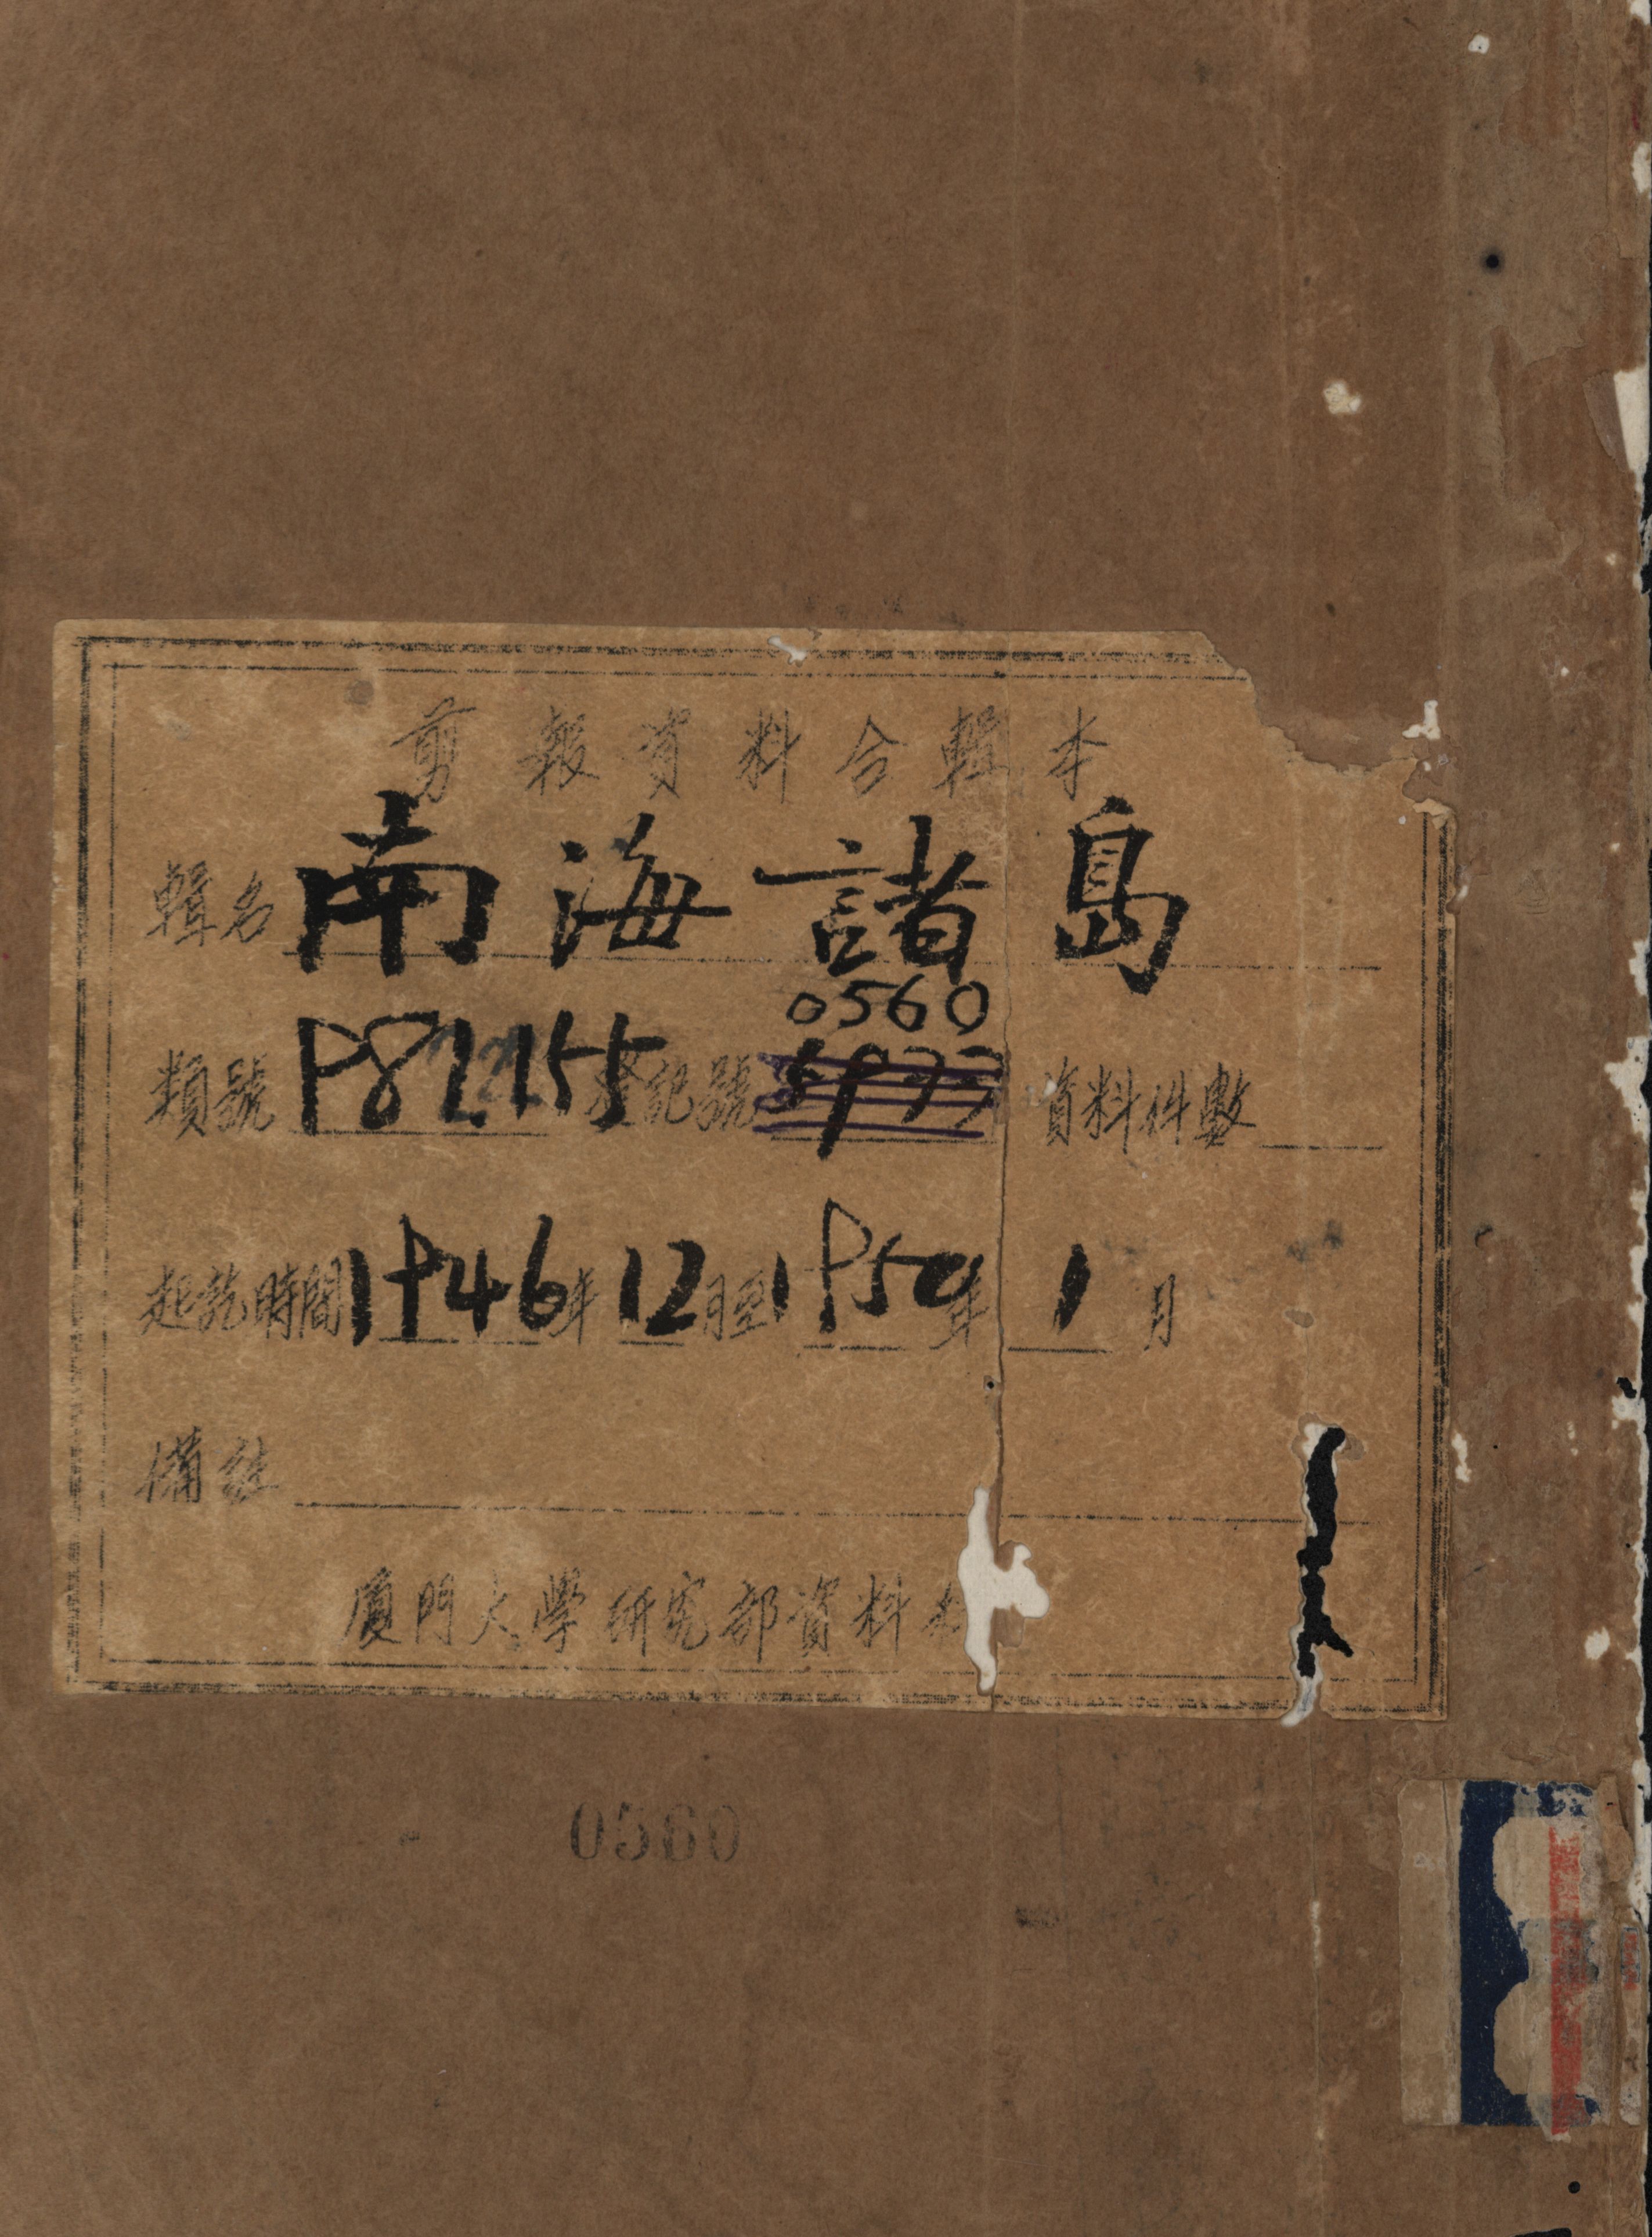 剪報資料合輯本
輯名 南海諸島
0560
類號 P82155 登記號 5977 資料件數
起訖時間 1946年 12月至 1950年 1月
備註
廈門大學研究部資料
0560